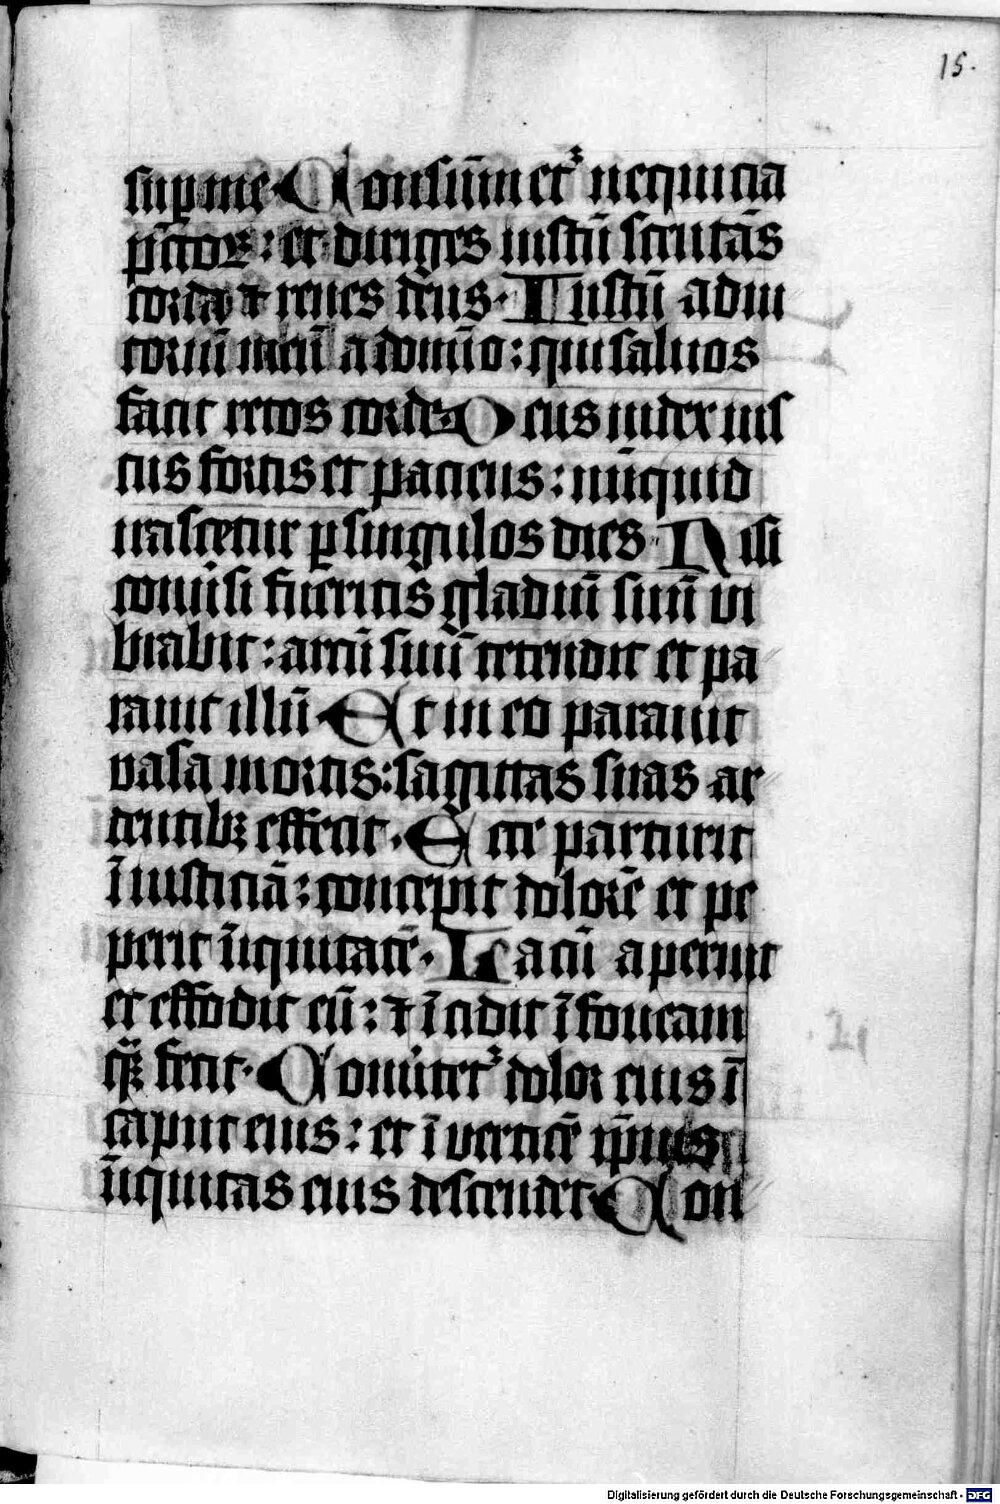 15.
sup me Consumet᷑ nequicia
pctõꝝ : et diriges iustũ scrutãs
corda ⁊ renes deus. Iustũ adiu
toriũ meũ a domĩo : qui saluos
facit rectos corde Deus iudex ius
tus fortis et paciens : nũquid
irascetur ꝑ singulos dies Nisi
conuĩsi fueritis gladiũ suũ vi
brabit : arcũ suũ tetendit et pa
rauit illũ Et in eo parauit
vasa mortis : sagittas suas ar
dentibꝫ effecit. Ecce parturit
ĩiusticiã : concepit dolorẽ et pe
perit ĩiquitatẽ. Lacũ aperuit
et effodit eũ : ⁊ ĩcidit ĩ foueam
quã fecit. Conũtet᷑ dolor eius ĩ
caput eius : et ĩ verticẽ ip̃ius
ĩiquitas eius descendet Con
Digitalisierung gefördert durch die Deutsche Forschungsgemeinschaft - DFG